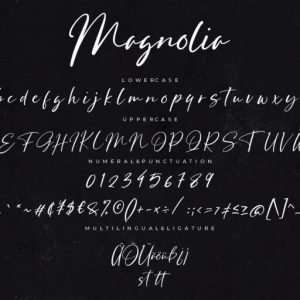 Magnolia
LOWERCASE
bcdefghijklmnopqrstuvwxy
UPPERCASE
EFGHIJKLMNOPQRSTUVW
NUMERAL&PUNCTUATION
0123456789
MULTILINGUAL&LIGATURE
st tt